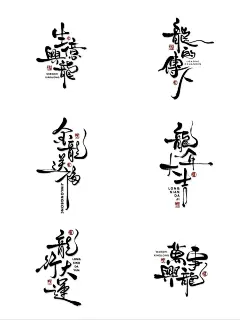 生億
興龍
龍的
傳人
金龍
送福
龍年
大吉
LONG
NIAN
DA
龍
行大運
萬事
興龍